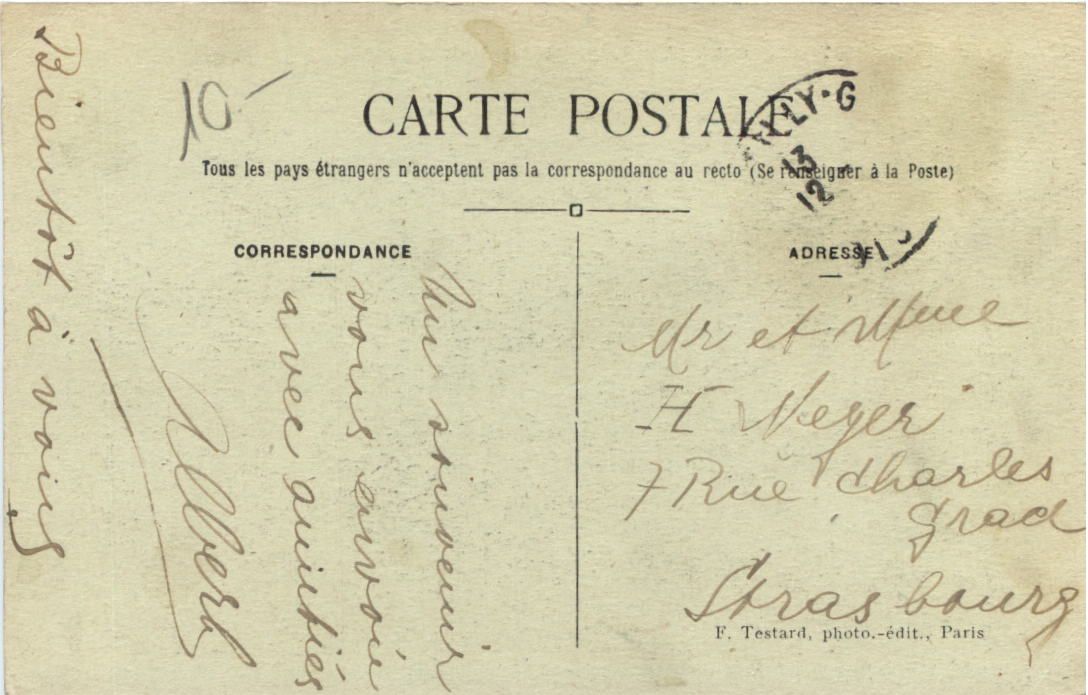 CARTE POSTALE
Tous les pays étrangers n'acceptent pas la correspondance au recto (Se renseigner à la Poste)
CORRESPONDANCE
Un souvenir
vous envoie
avec amitiés
Albert
Bientôt à vous
10-
LLY-G
13
12
ADRESSE
Mr et Mme
H Meyer
7 Rue Charles
Grad
Strasbourg
F. Testard, photo.-édit., Paris